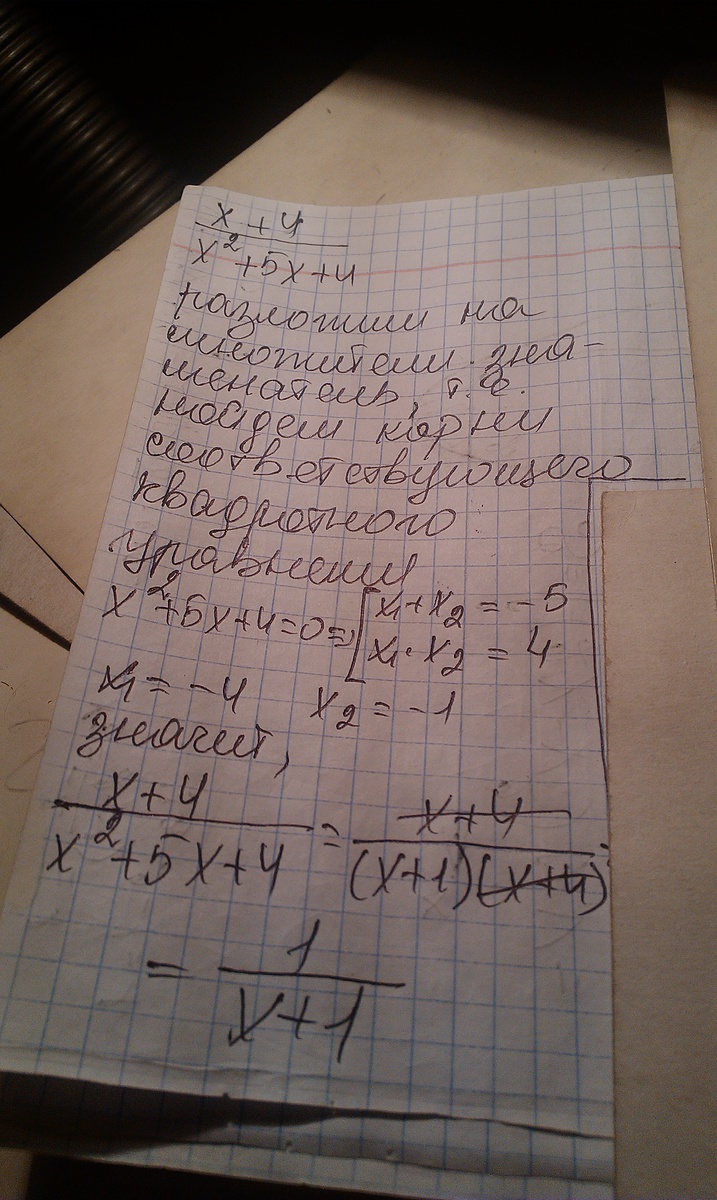 x + 4
x² + 5x + 4
разложим на
множители зна-
менатель, т. е.
найдем корни
соответствующего
квадратного
уравнения
x² + 5x + 4 = 0 => [ x₁ + x₂ = -5
x₁ · x₂ = 4
x₁ = -4 x₂ = -1
значит,
x + 4 / x² + 5x + 4 = x + 4 / (x + 1)(x + 4) =
= 1 / x + 1